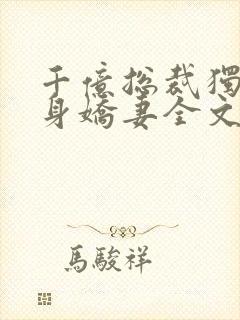 千億總裁獨
身嬌妻全文
馬駿祥